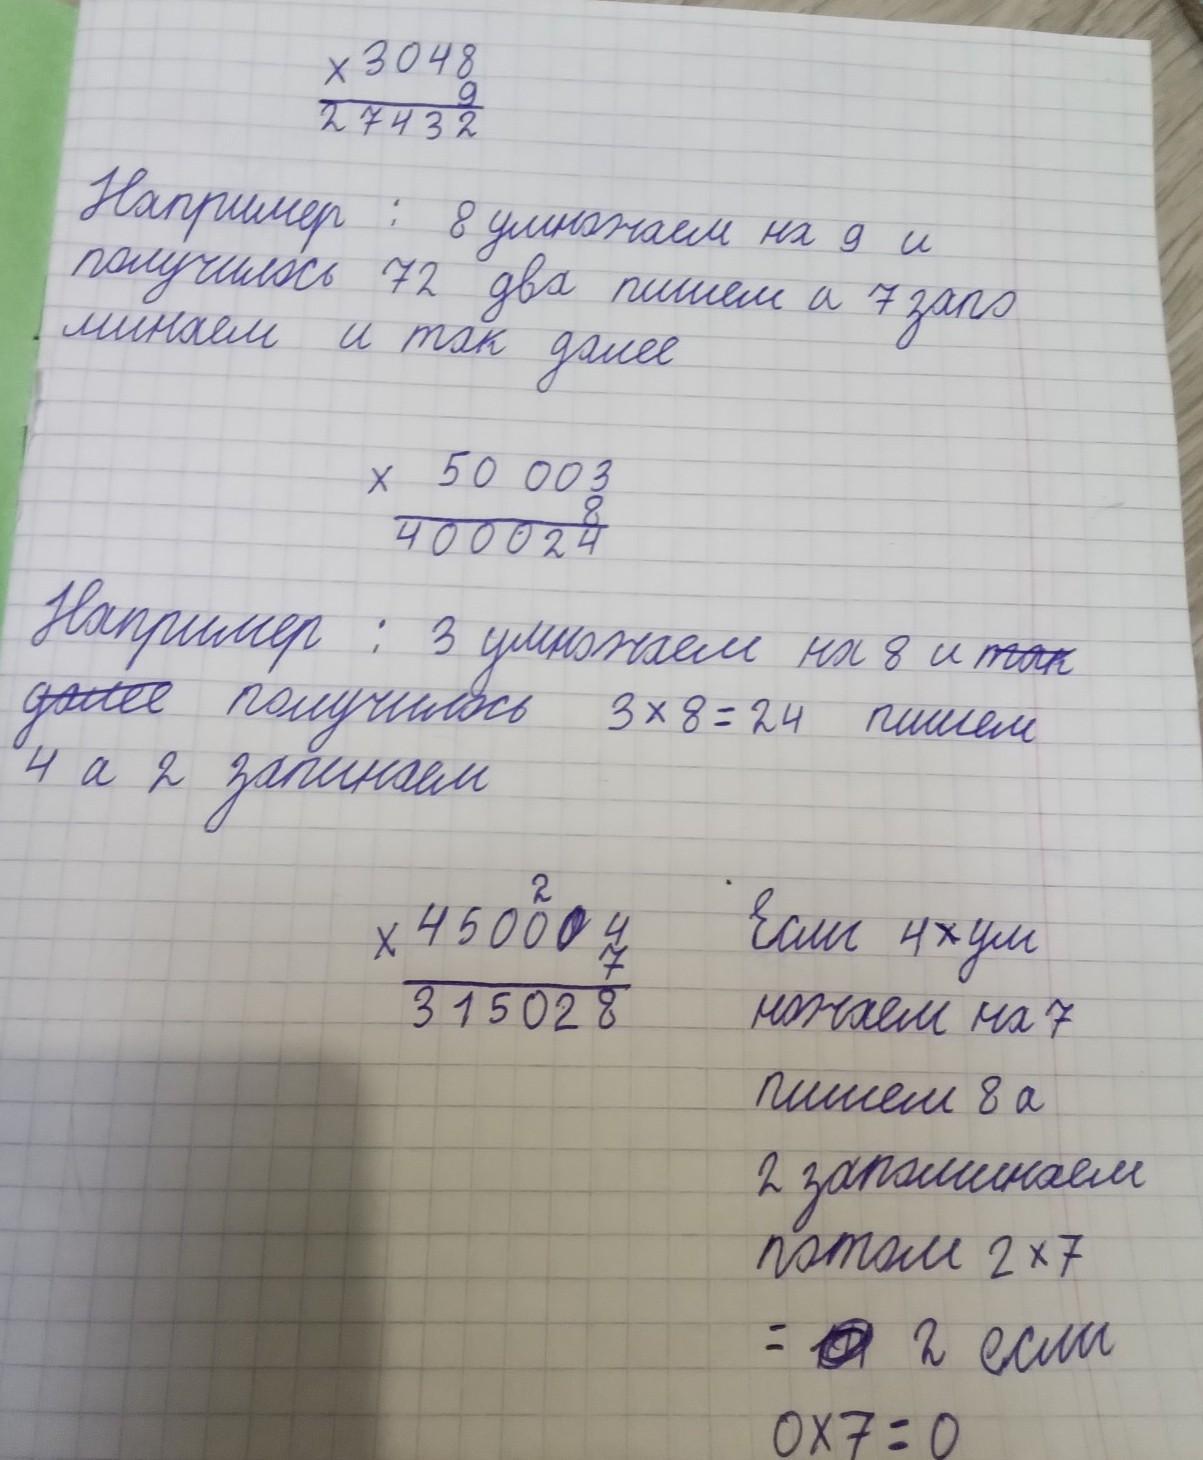 × 3048
9
27432
Например : 8 умножаем на 9 и
получилось 72 два пишем а 7 запо
минаем и так далее
× 50 003
8
400024
Например : 3 умножаем на 8 и так
далее получилось 3×8=24 пишем
4 а 2 запинаем
2
× 450004
7
315028
Если 4× ум
ножаем на 7
пишем 8 а
2 запоминаем
потом 2×7
= 2 если
0×7=0